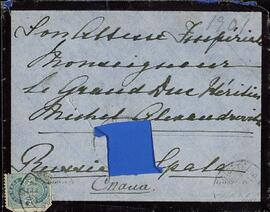 1901
Son Altesse Impériale
Monseigneur
le Grand Duc Héritier
Michel Alexandrovitch
Russie Spala
Спала.